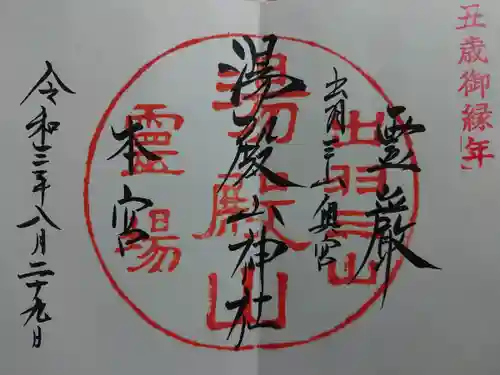 丑歳御縁年
霊厳
出羽三山奥宮
湯殿山神社
本宮
令和三年八月二十九日
出羽三山
湯殿山
霊湯